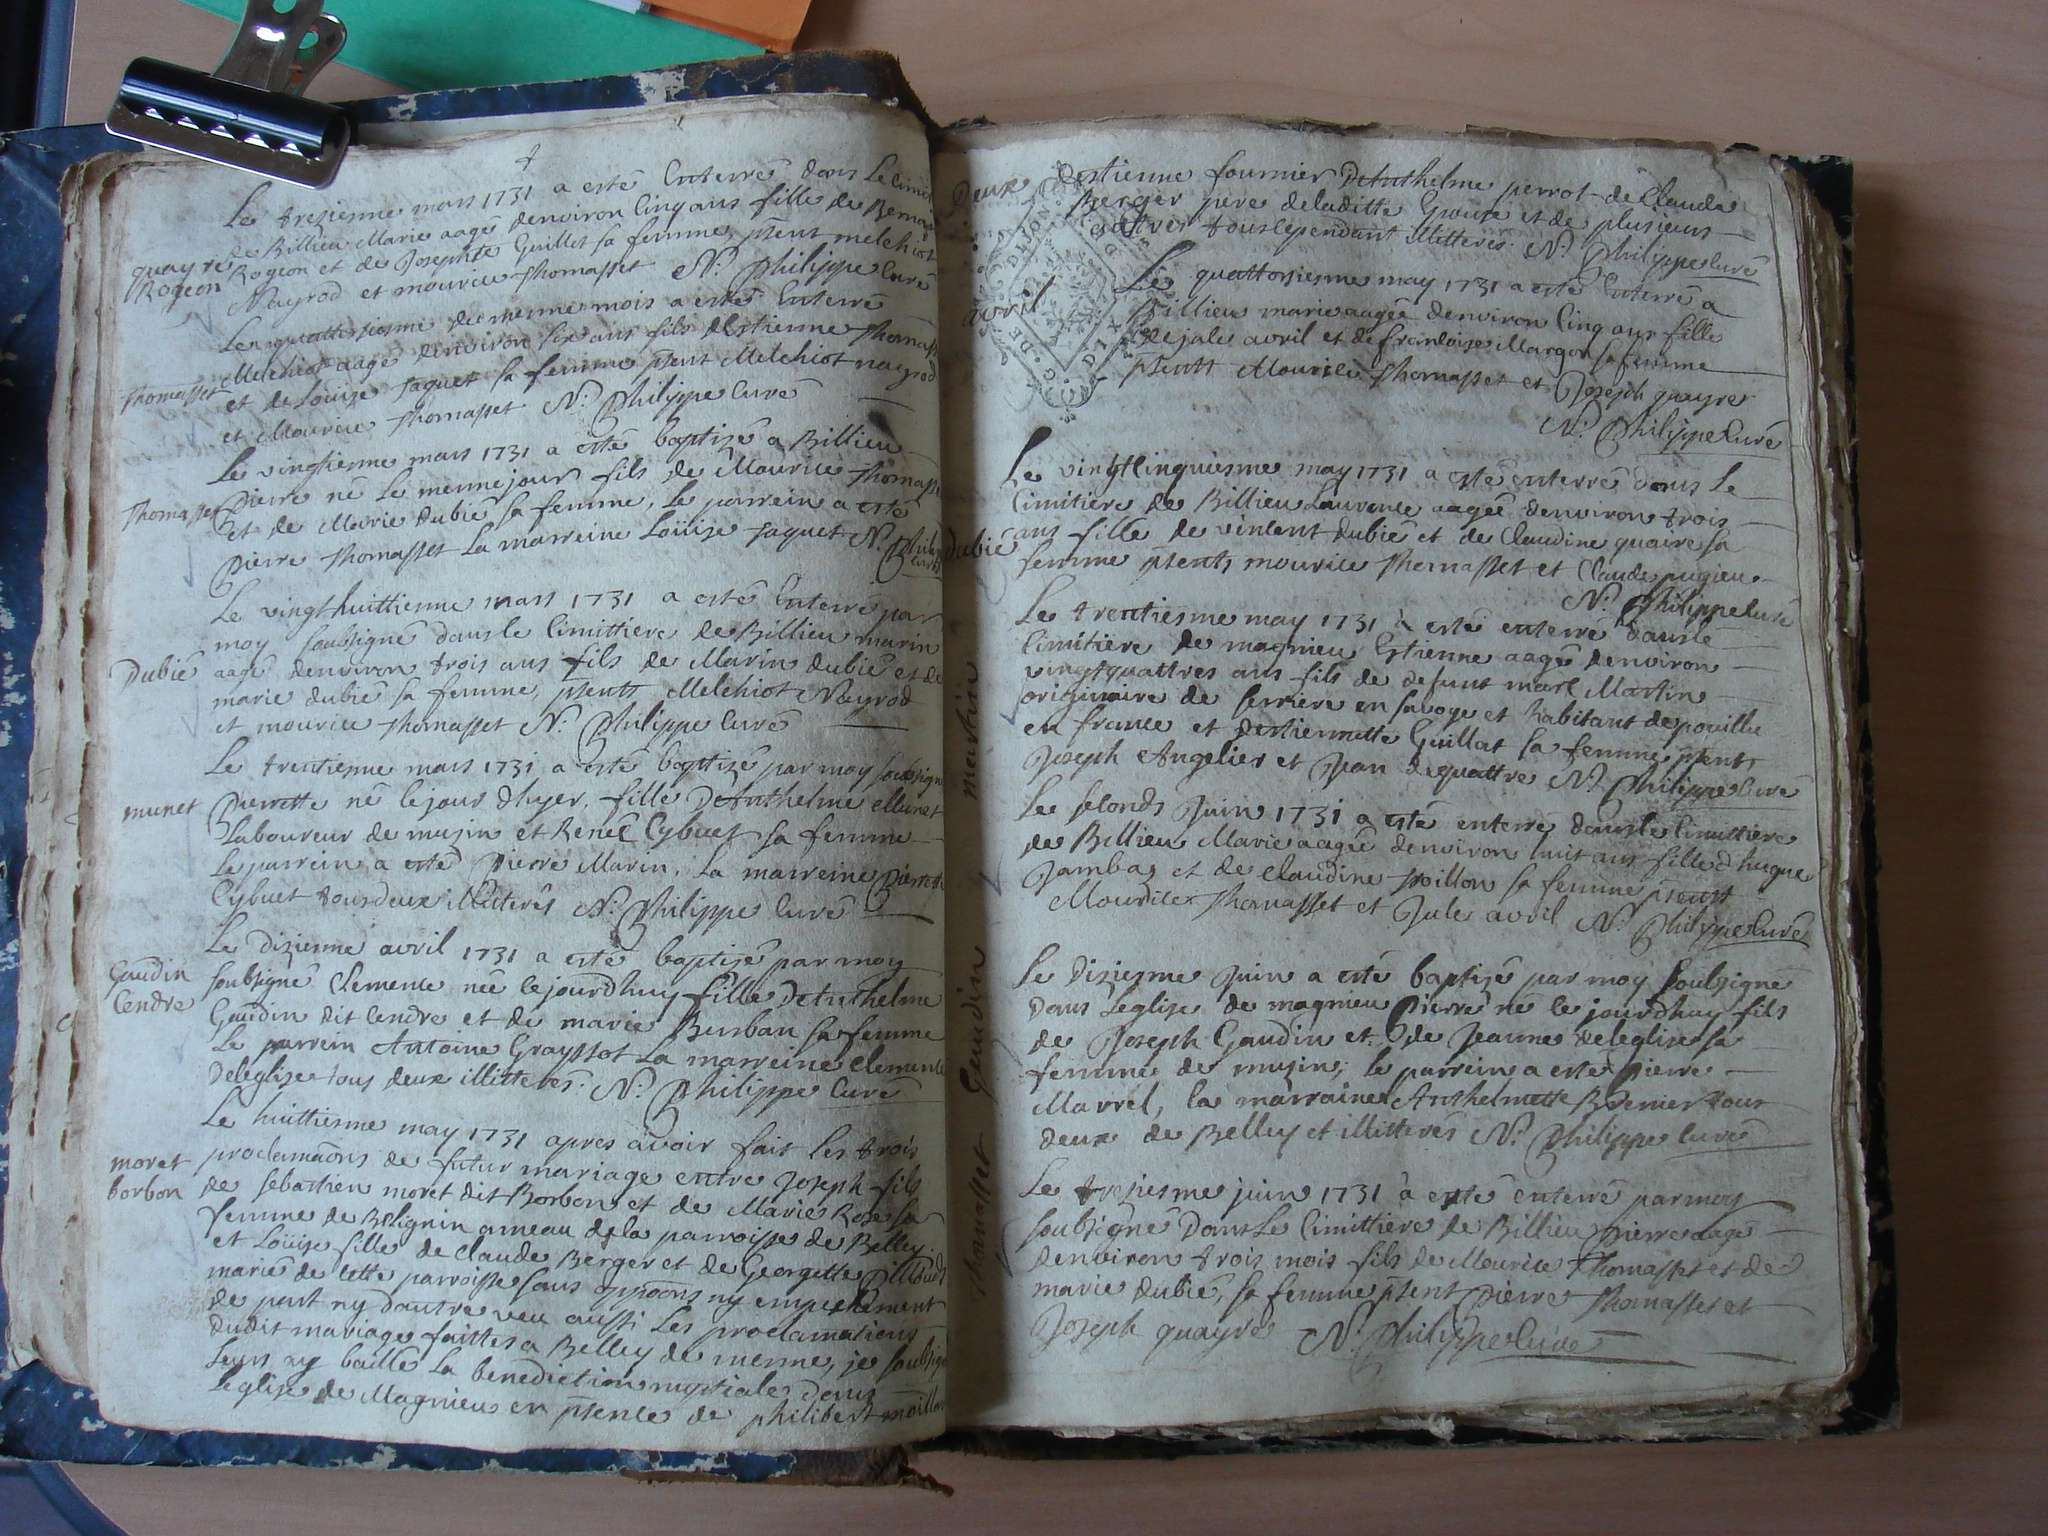 Le tresiesme mars 1731 a esté Enterré dans Le
de Billieu Marie aagée denviron Cinq ans fille de
quayre Rogeon et de Josephte Guillet sa femme, pñent melchiot
Rogeon
Nayrod et mourice thomasset N. Philippe Curé
Le quattorsiesme du mesme mois a esté Enterré
Melchiot aagé denviron six ans fils destienne
thomasset et de Louise Jaquet sa femme pñent Melchiot nayrod
et Mourice thomasset N. Philippe Curé
Le vingtiesme mars 1731 a esté baptisé a Billieu
Pierre né Le mesme jour fils de Maurice
thomasset et de Marie Dubié sa femme, Le parrein a esté
Pierre thomasset La marreine Loüise Jaquet N. Philippe
Curé
Le vingthuittiesme mars 1731 a esté Enterré par
moy soubsigné dans le Cimittiere de Billieu marin
Dubié aagé denviron trois ans fils de Marin dubié et de
marie dubié sa femme, pñents Melchiot Nayrod
et mourice thomasset N. Philippe Curé
Le trentiesme mars 1731 a esté baptisé par moy soubsigné
munet Pierrette né le jour dhyer, fille DeAnthelme Munet
Laboureur de musin et Renée Cybuet sa femme
Le parrein a esté Pierre Marin, La marreine Pierrette
Cybuet tous deux illitterés N. Philippe Curé
Le Dixiesme avril 1731 a esté baptisé par moy
Gaudin soubsigné Clemence née lejourdhuy fille DeAnthelme
Cendre Gaudin dit Cendre et de marie Burban sa femme
Le parrein Antoine Grayssot La marreine Clemence
Deleglise tous deux illitterés. N. Philippe Curé
Le huittiesme may 1731 apres avoir fait Les trois
moret proclamaõns de futur mariage entre Joseph fils
borbon de sebastien moret dit Borbon et de Marie Rose sa
femme de Blignin ameau de la parroisse de Belley
et Loüise fille de Claude Berger et de Georgette
mariée de Cette parroisse sans oppoõns ny empeschement
de part ny dautre veu aussi Les proclamations
dudit mariage faittes a Belley de mesme, je soubsigné
Leurs ay baillé La benediction nuptiale dans
Leglise de Magnieu en pñence de philibert
Deux destienne fournier DeAnthelme perrot de Claude
Berger pere de laditte Epouse et de plusieurs
autres tous Cependant illitteres. N. Philippe Curé
G. DE DIJON
DIX D
avril
Le quattorsiesme may 1731 a esté Enterré a
Billieu marie aagée denviron Cinq ans fille
de jule avril et de francoise Margon sa femme
pñents Mourice thomasset et Joseph quayre
N. Philippe Curé
Le vingtcinquiesme may 1731 a esté enterré dans Le
Cimitiere de Billieu Laurence aagée denviron trois
Dubié ans fille de vincent dubié et de Claudine quaire sa
femme pñents mourice thomasset et Claude pugieu
N. Philippe Curé
Le trentiesme may 1731 a esté enterré dans le
Cimitiere de magnieu Estienne aagé denviron
martin vingtquattres ans fils de defunt marc Martin
originaire de serriere en savoye et habitant de pouillu
en france et destiennette Guillat sa femme pñents
Joseph Angelier et Jean dequattre N. Philippe Curé
Le seconds Juin 1731 a esté enterré dans le Cimittiere
de Billieu Marie aagée denviron huit ans fille dhugue
Jambaz et de Claudine poillon sa femme pñents
Mourice thomasset et Jule avril N. Philippe Curé
Le Disiesme Juin a esté baptisé par moy soubsigné
Dans Leglise de magnieu Pierre né le jourdhuy fils
Gaudin de Joseph Gaudin et de Jeanne deleglise sa
femme de musin, le parrein a esté Pierre
Marrel, la marraine Anthelmette Brenier tous
deux de Belley et illitterés N. Philippe Curé
thomasset
Le tresiesme juin 1731 a esté enterré par moy
soubsigné Dans Le Cimittiere de Billieu Pierre aagé
denviron trois mois fils de Mourice thomasset et de
marie dubié, sa femme pñent Pierre thomasset et
Joseph quayre N. Philippe Curé